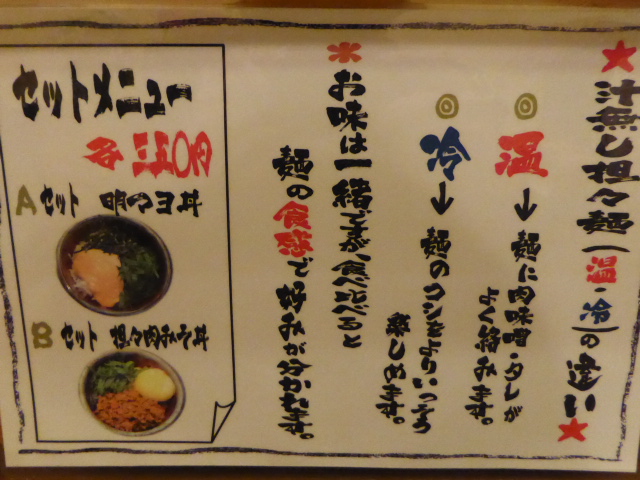 ★汁無し担々麺(温・冷)の違い★
◎温↓麺に肉味噌・タレが
よく絡みます。
◎冷↓麺のコシをよりいっそう
楽しめます。
※お味は一緒ですが、食べ比べると
麺の食感で好みが分かれます。
セットメニュー
各
Aセット 明マヨ丼
Bセット 担々肉みそ丼